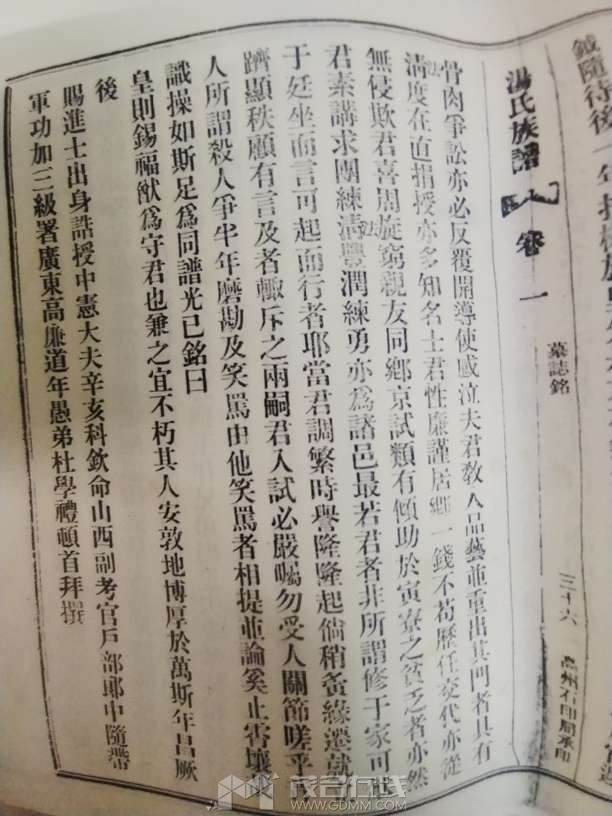 鉞隨待後一年
湯氏族譜
卷一
墓誌銘
三十六
高州石印局承印
骨肉爭訟亦必反覆開導使感泣夫君教人品藝並重出其門者具有
清度在直捐授亦多知名士君性廉謹居鄉一錢不苟歷任交代亦從
無侵欺君喜周旋窮親友同鄉京試類有傾助於寅寮之貧乏者亦然
君素講求團練清譽潤練勇亦為諸邑最若君者非所謂修于家可
于廷坐而言可起而行者耶當君調繁時譽隆隆起倘稍夤緣遷就
躋顯秩顧有言及者輙斥之兩嗣君入試必嚴囑勿受人關節嗟乎
人所謂殺人爭半年磨勘及笑罵由他笑罵者相提並論奚止霄壤
識操如斯足為同譜光已銘曰
皇則錫福猷為守君也兼之宜不朽其人安敦地博厚於萬斯年昌厥
後
賜進士出身誥授中憲大夫辛亥科欽命山西副考官戶部郎中隨帶
軍功加三級署廣東高廉道年愚弟杜學禮頓首拜撰
茂名在线
WWW.GDMM.COM